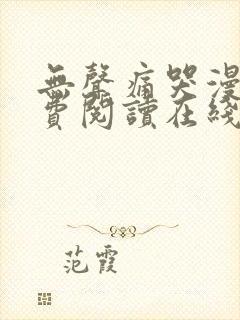 無聲痛哭漫
費閱讀在綫
范霞